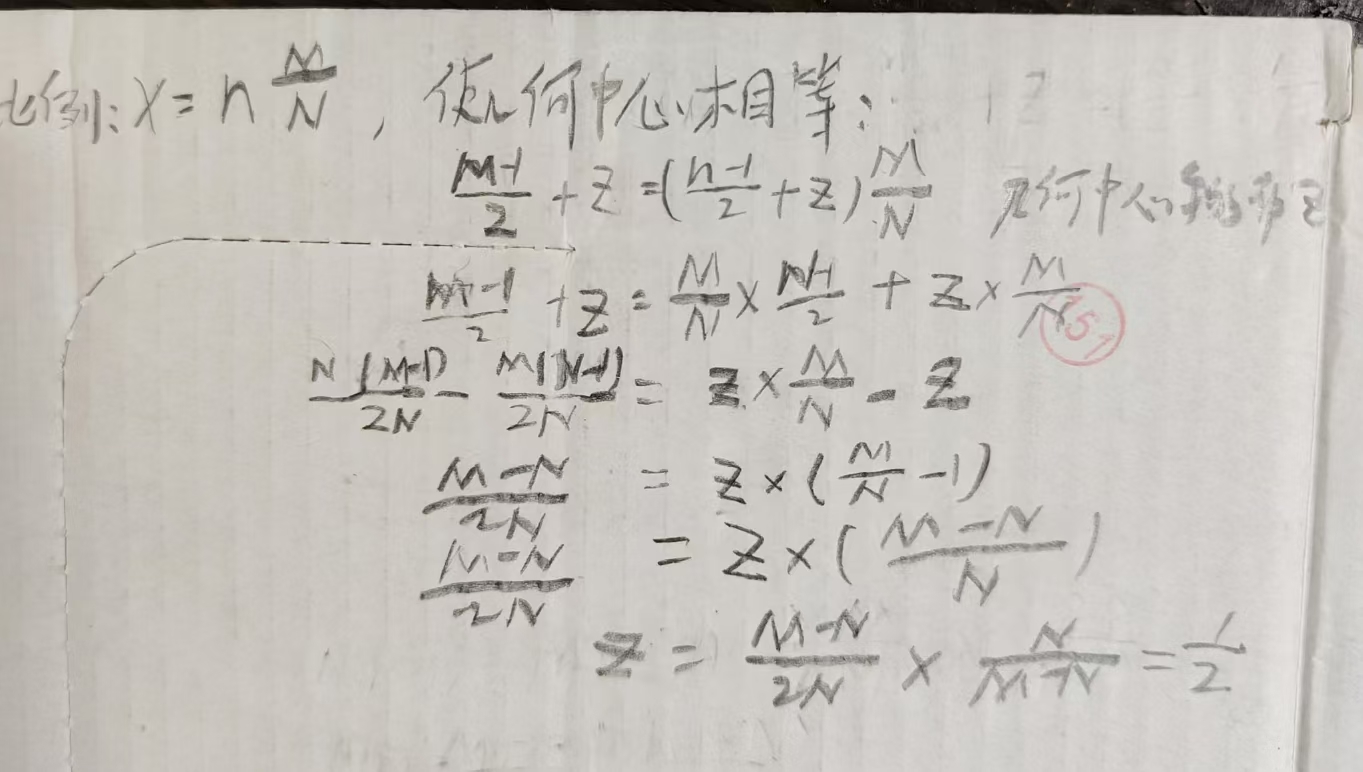 比例: X = n M/N , 使几何中心相等:
(M-1)/2 + Z = ((n-1)/2 + Z) M/N 几何中心偏移Z
(M-1)/2 + Z = M/N × (N-1)/2 + Z × M/N
N(M-1)/2N - M(N-1)/2N = Z × M/N - Z
(M-N)/2N = Z × (M/N - 1)
(M-N)/2N = Z × ((M-N)/N)
Z = (M-N)/2N × N/(M-N) = 1/2